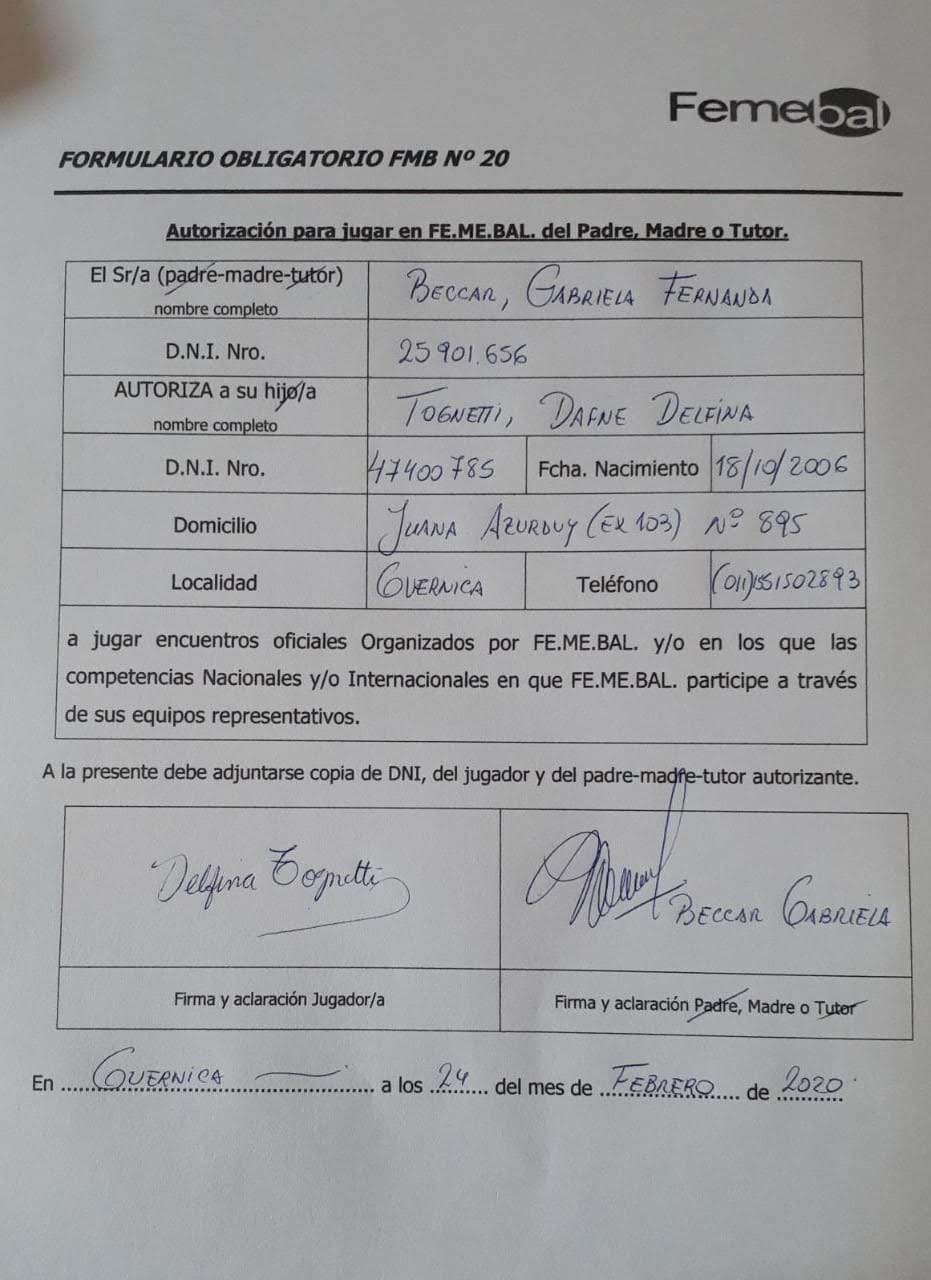 Femebal
FORMULARIO OBLIGATORIO FMB Nº 20
Autorización para jugar en FE.ME.BAL. del Padre, Madre o Tutor.
El Sr/a (padre-madre-tutor) BECCAR, GABRIELA FERNANDA
nombre completo
D.N.I. Nro. 25901.656
AUTORIZA a su hijo/a TOGNETTI, DAFNE DELFINA
nombre completo
D.N.I. Nro. 47400785 Fcha. Nacimiento 18/10/2006
Domicilio JUANA AZURDUY (EX 103) Nº 895
Localidad GUERNICA Teléfono (011)551502893
a jugar encuentros oficiales Organizados por FE.ME.BAL. y/o en los que las
competencias Nacionales y/o Internacionales en que FE.ME.BAL. participe a través
de sus equipos representativos.
A la presente debe adjuntarse copia de DNI, del jugador y del padre-madre-tutor autorizante.
Delfina Tognetti
BECCAR GABRIELA
Firma y aclaración Jugador/a Firma y aclaración Padre, Madre o Tutor
En GUERNICA a los 24 del mes de FEBRERO de 2020